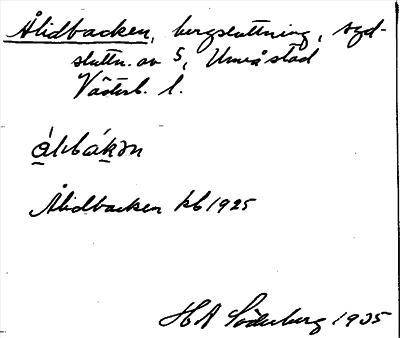 Ålidbacken, bergsluttning, syd-
sluttn. av 5, Umeå stad
Västerb. l.
Ålidbacken kb 1925
HA Söderberg 1935